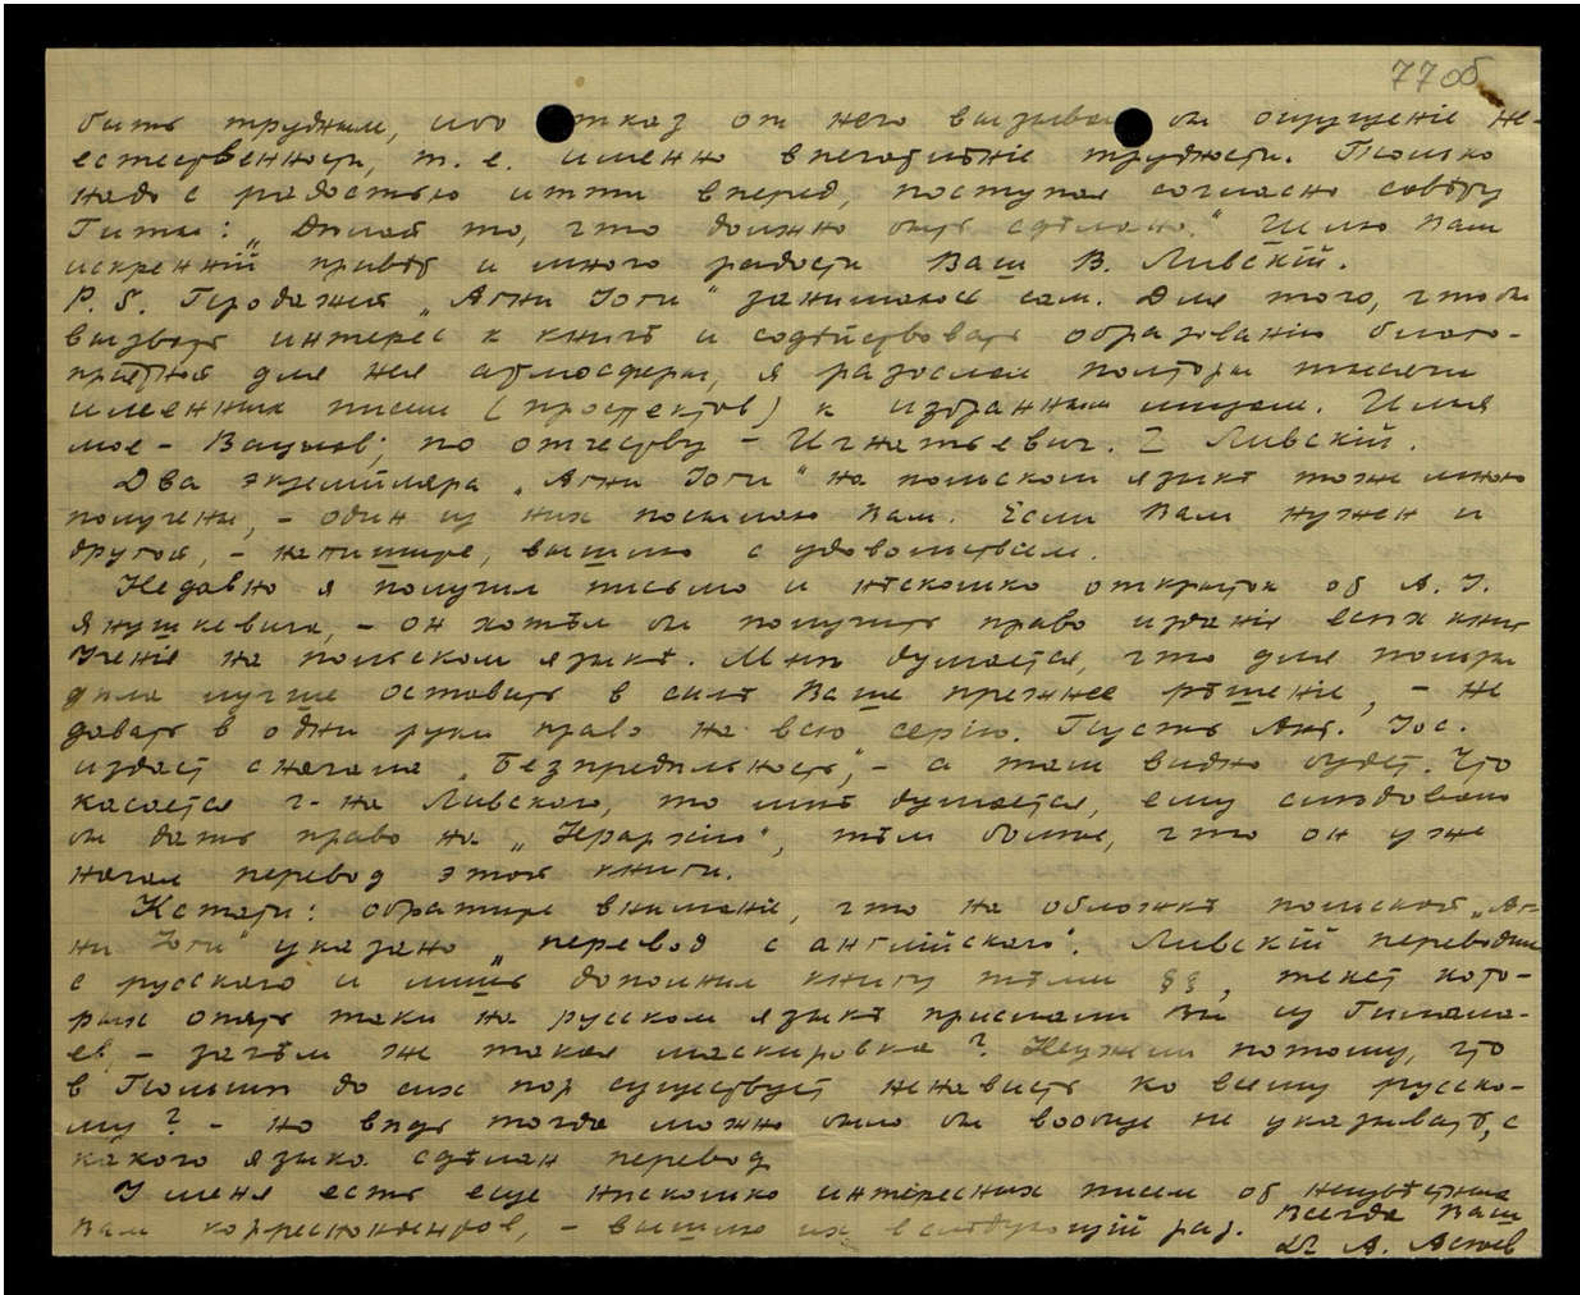 77 об
быть трудным, ибо отказ от него вызывал бы ощущеніе не-
естественности, т. е. именно впечатлѣніе трудности. Только
надо с радостью итти вперед, поступая согласно совѣту
Гиты: „Дѣлай то, что должно быть сдѣлано." Шлю Вам
искренній привѣт и много радости Ваш В. Ливскій.
P. S. Продажей „Агни Іоги" занимаюсь сам. Для того, чтобы
вызвать интерес к книгѣ и содѣйствовать образованію благо-
пріятной для нея атмосферы, я разослал полторы тысячи
именных писем (проспектов) к избранным лицам. Имя
мое - Вацлав; по отчеству - Игнатьевич. Ливскій.
Два экземпляра „Агни Іоги" на польском языкѣ тоже мною
получены, - один из них посылаю Вам. Если Вам нужен и
другой, - напишите, вышлю с удовольствіем.
Недавно я получил письмо и нѣсколько открыток от А. І.
Янушкевича, - он хотѣл бы получить право изданія всѣх книг
Ученія на польском языкѣ. Мнѣ думается, что для пользы
дѣла лучше оставить в силѣ Ваше прежнее рѣшеніе, - не
давать в одни руки право на всю серію. Пусть Ант. Іос.
издаст сначала „Безпредѣльность", - а там видно будет. Что
касается г-на Ливскаго, то мнѣ думается, ему слѣдовало
бы дать право на „Іерархію", тѣм болѣе, что он уже
начал перевод этой книги.
Кстати: обратите вниманіе, что на обложкѣ польской „Аг-
ни Іоги" указано „перевод с англійскаго". Ливскій переводил
с русскаго и лишь дополнил книгу тѣми §§, текст кото-
рых опять таки на русском языкѣ прислали Вы из Гимала-
ев, - зачѣм же такая маскировка? Неужели потому, что
в Польшѣ до сих пор существует ненависть ко всему русско-
му? - но вѣдь тогда можно было бы вообще не указывать, с
какого языка сдѣлан перевод
У меня есть еще нѣсколько интересных писем от неизвѣстных
Вам корреспондентов, - вышлю их в слѣдующій раз. Всегда Ваш
А. Асеев